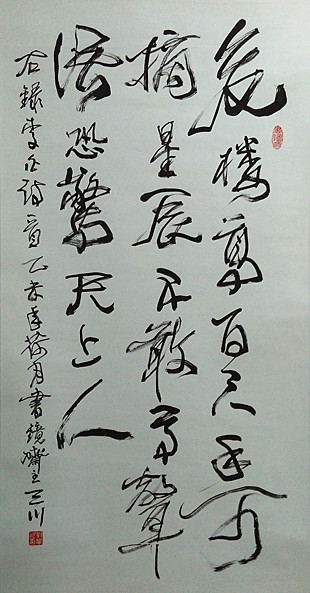 危樓高百尺手可
摘星辰不敢高聲
語恐驚天上人
右錄李白詩一首乙未年荷月書鏡齋主三川